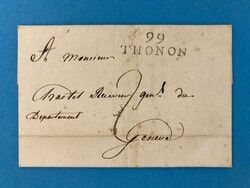 99
THONON
A Monsieur
Receveur gen.l du
Departement
Geneve